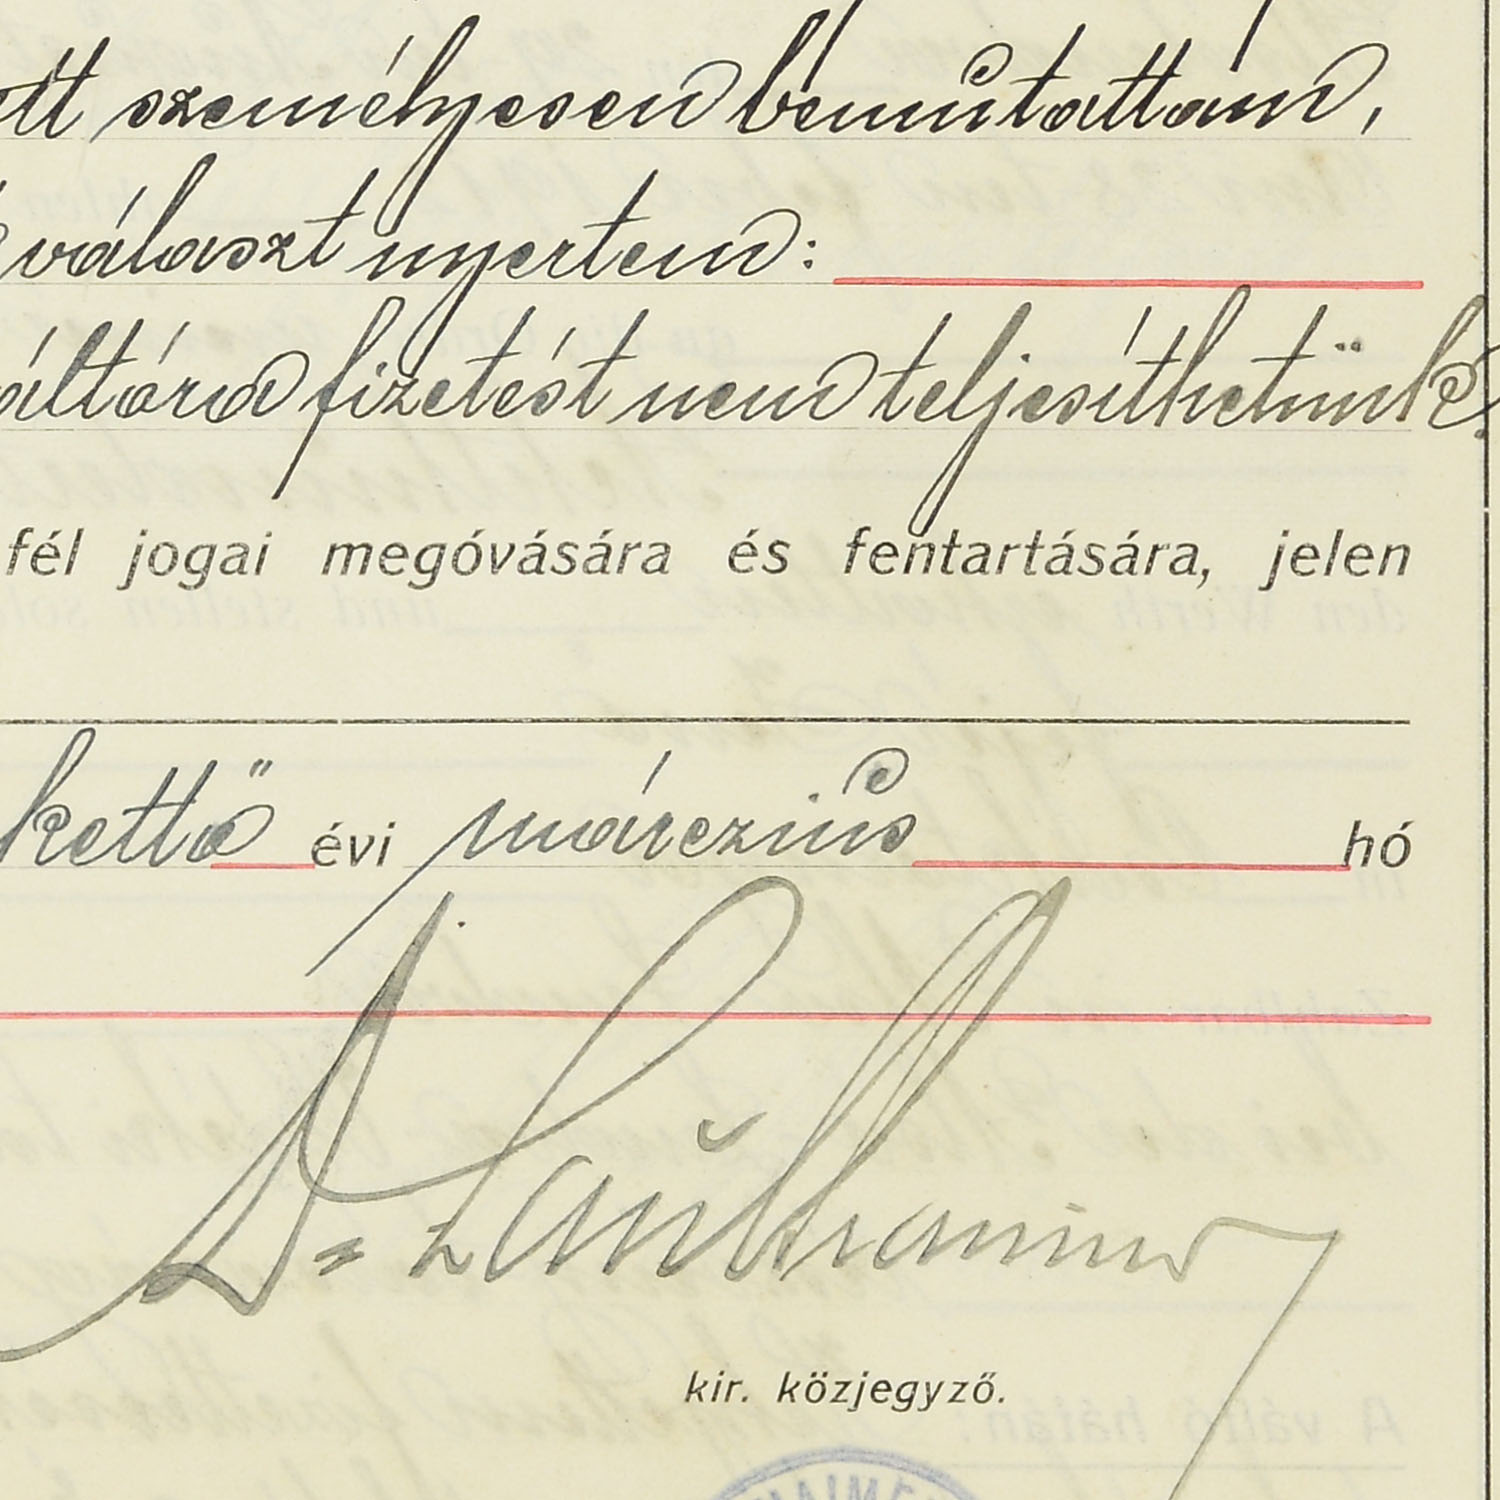 személyesen bemutattam,
választ nyertem:
fizetést nem teljesíthetünk.
fél jogai megóvására és fentartására, jelen
kettő évi márczius hó
Dr
kir. közjegyző.